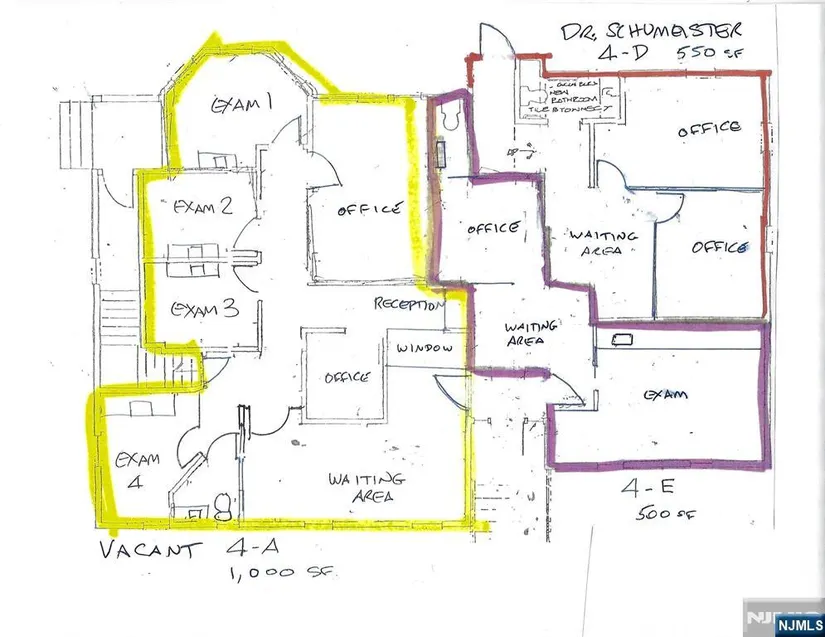 DR. SCHUMEISTER
4-D 550 SF
EXAM 1
NEW
BATHROOM
TILE & CONNECT
OFFICE
EXAM 2
OFFICE
OFFICE
WAITING
AREA
OFFICE
EXAM 3
RECEPTION
WINDOW
WAITING
AREA
OFFICE
EXAM
EXAM
4
WAITING
AREA
4-E
500 SF
VACANT 4-A
1,000 SF.
NJMLS
NJMLS